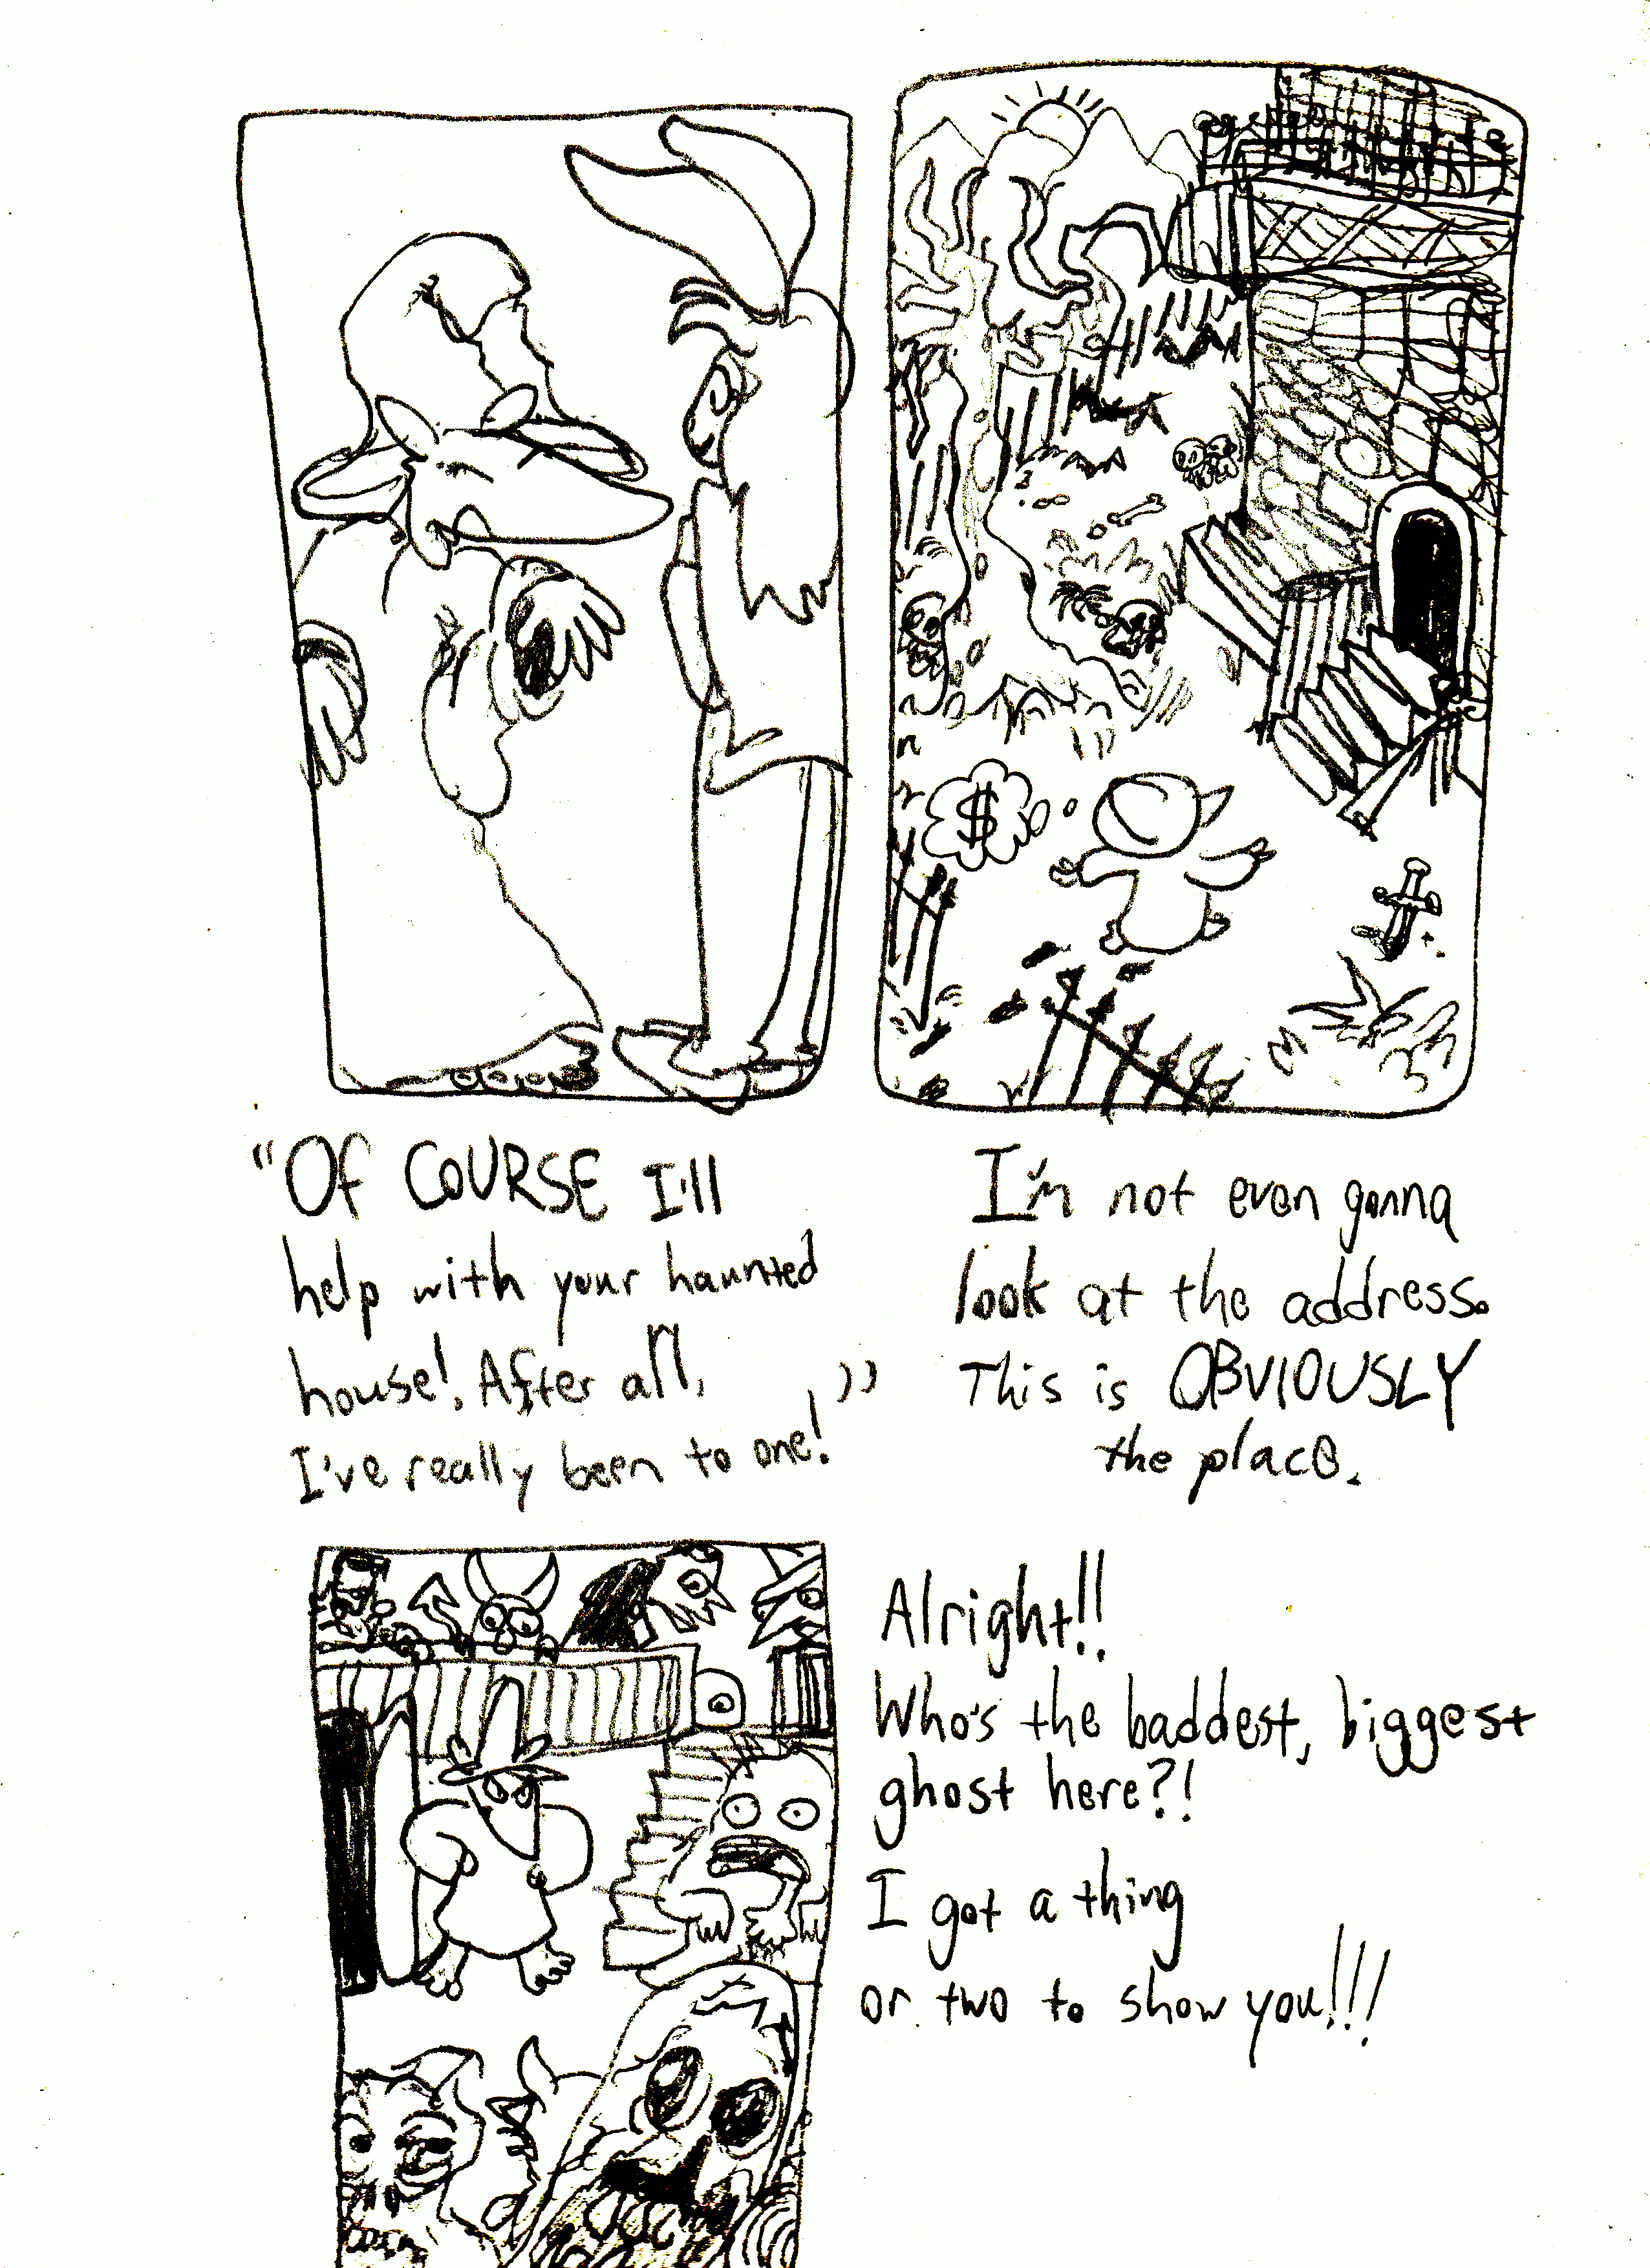 "Of COURSE I'll
help with your haunted
house! After all,
I've really been to one!"
$
I'm not even gonna
look at the address.
This is OBVIOUSLY
the place.
Alright!!
Who's the baddest, biggest
ghost here?!
I got a thing
or two to show you!!!